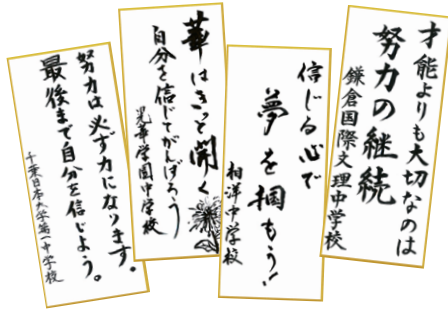 努力は必ず力になります。
最後まで自分を信じよう。
千葉日本大学第一中学校
華はきっと開く
自分を信じてがんばろう
晃華学園中学校
信じる心で
夢を掴もう!
相洋中学校
才能よりも大切なのは
努力の継続
鎌倉国際文理中学校